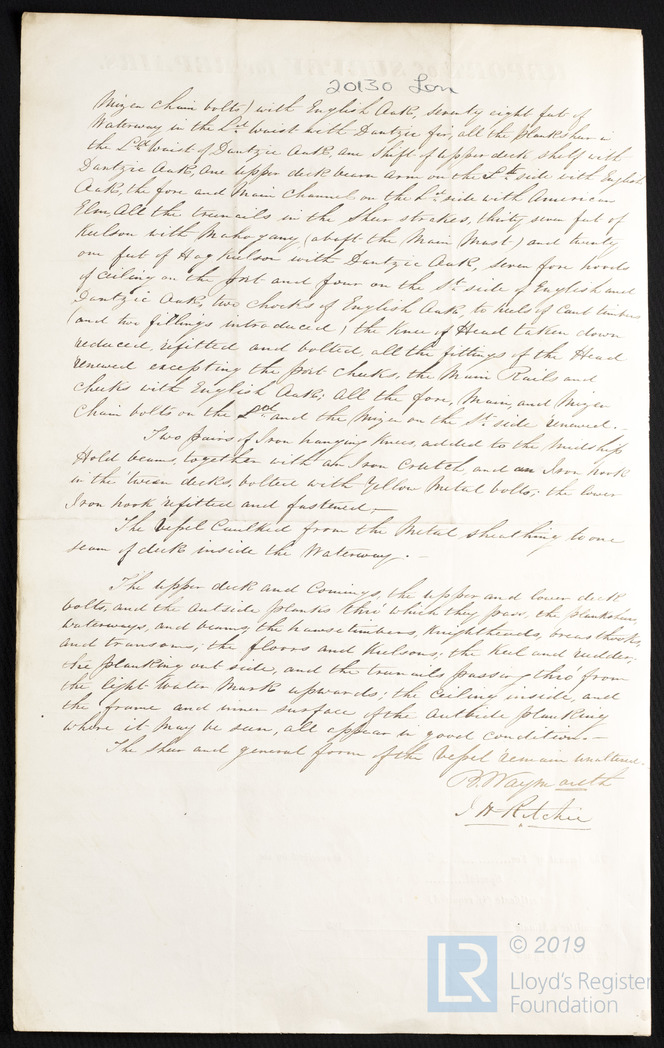 20130 Lon
Mizen Chain bolts) with English Oak, seventy eight feet of
Waterway in the Ld. waist with Dantzic fir, all the plansheer in
the Ld. waist of Dantzic Oak, one Shift of upper deck shelf with
Dantzic Oak, one upper deck beam arm on the Ld. side with English
Oak, the fore and Main Channel on the Ld. side with American
Elm, All the treenails in the Sheer strakes, thirty seven feet of
Keelson with Mahogany, (abaft the Main Mast) and twenty
one feet of Hog Keelson with Dantzic Oak, seven fore hoods
of ceiling on the port and four on the St. side of English and
Dantzic Oak, two Chocks of English Oak, to heels of Cant timbers
(and two fillings introduced) the Knee of Head taken down
reduced, refitted and bolted, all the fittings of the Head
renewed excepting the port Cheeks, the Main Rails and
Cheeks with English Oak; All the fore, Main, and Mizen
Chain bolts on the Ld. and the Mizen on the St. side renewed.
Two pairs of Iron hanging Knees, added to the midship
Hold beams, together with an Iron Crutch and an Iron hook
in the 'tween decks, bolted with Yellow Metal bolts; the lower
Iron hook refitted and fastened.
The Vessel Caulked from the Metal sheathing to one
seam of deck inside the Waterway.
The upper deck and Comings, the upper and lower deck
bolts, and the outside planks thro' which they pass, the plansheer,
waterways, and beams, the hawsetimbers, Knightheads, breasthooks,
and transoms; the floors and Keelsons; the Keel and rudder;
the planking out side, and the treenails passing thro from
the light Water Mark upwards; the Ceiling inside, and
the frame and inner surface of the outside planking
where it may be seen, all appear in good condition.
The sheer and general form of the Vessel remain unaltered.
B. Waymouth
J H Ritchie
LR
© 2019
Lloyd's Register
Foundation